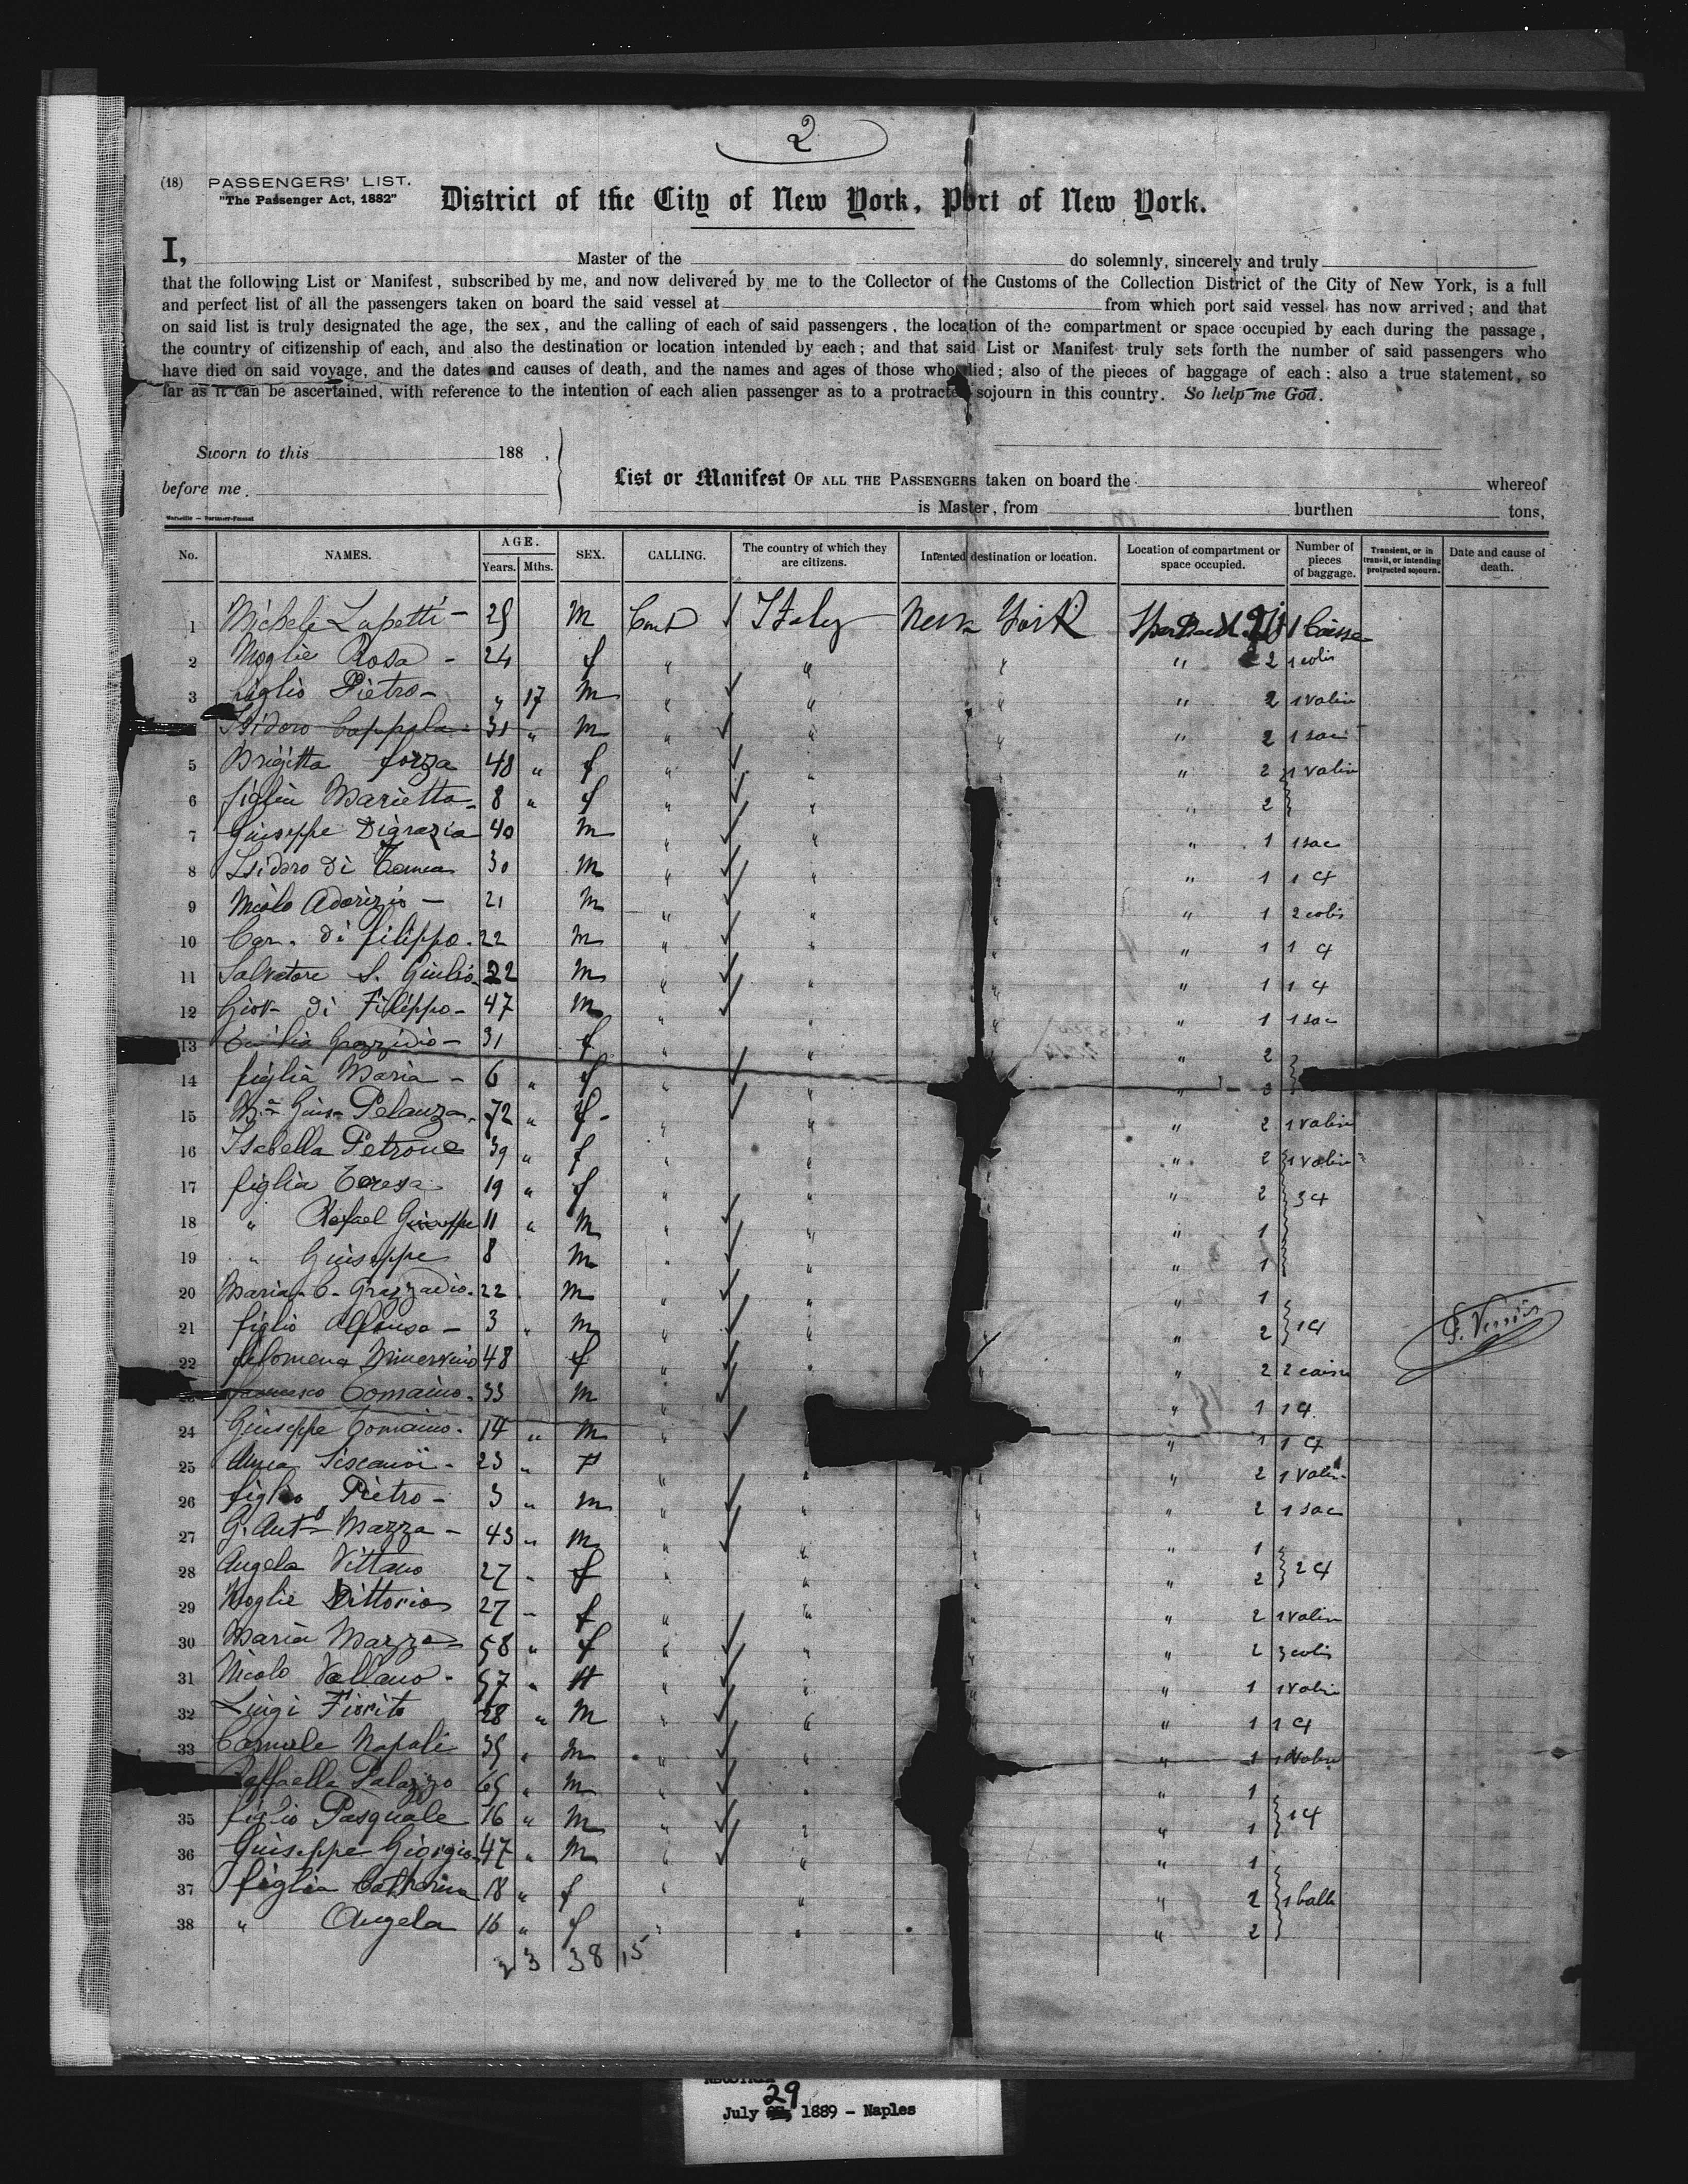 2
(18) PASSENGERS' LIST.
"The Passenger Act, 1882"
District of the City of New York, Port of New York.
I, Master of the do solemnly, sincerely and truly
that the following List or Manifest, subscribed by me, and now delivered by me to the Collector of the Customs of the Collection District of the City of New York, is a full
and perfect list of all the passengers taken on board the said vessel at from which port said vessel has now arrived; and that
on said list is truly designated the age, the sex, and the calling of each of said passengers, the location of the compartment or space occupied by each during the passage,
the country of citizenship of each, and also the destination or location intended by each; and that said List or Manifest truly sets forth the number of said passengers who
have died on said voyage, and the dates and causes of death, and the names and ages of those who died; also of the pieces of baggage of each: also a true statement, so
far as it can be ascertained, with reference to the intention of each alien passenger as to a protracted sojourn in this country. So help me God.
Sworn to this 188 ,
before me.
List or Manifest OF ALL THE PASSENGERS taken on board the whereof
is Master, from burthen tons,
No. NAMES. AGE. Years. Mths. SEX. CALLING. The country of which they are citizens. Intented destination or location. Location of compartment or space occupied. Number of pieces of baggage. Transient, or in transit, or intending protracted sojourn. Date and cause of death.
1 Michele Lapetti - 25 M Italy New York 1 Caisse
2 Moglie Rosa - 24 f " " " " 2 1 colis
3 figlio Pietro - " 17 M " " " " 2 1 valise
Isidoro Coppola 31 " M " " " " 2 1 sac
5 Brigitta forza 48 " f " " " " 2 1 valise
6 figlia Marietta - 8 " f " " " 2
7 Giuseppe Digrazia 40 M " " " " 1 1 sac
8 Isidoro di 30 M " " " " 1 1 4
9 Nicolo Adorizio - 21 M " " " " 1 2 colis
10 Car. di filippo. 22 M " " " 1 1 4
11 Salvatore S. Giulio 22 M " " " " 1 1 4
12 Giov. di Filippo - 47 M " " " " 1 1 sac
13 Grazzidio - 31 f " " " 2
14 figlia Maria - 6 " f " "
15 Pelanza. 72 " f - " " " 2 1 valise
16 Isabella Petrone 39 " f " " " 2 1 valise
17 figlia Teresa 19 " f " " " 2 3 4
18 " Rafael Giuseppe 11 " M " " " 1
19 " Giuseppe 8 M " " " 1
20 Maria C. Grazzadio. 22 M " " " 1
21 figlio Alfonso - 3 " M " " " 2 1 4
22 filomena Minervino 48 f " " " " 2 2 caisse
Francesco Tomaino. 33 M " " 1 1 4
24 Giuseppe Tomaino. 14 " M " " 1 1 4
25 23 " f " " " 2 1 valise
26 figlio Pietro - 3 " M " " " " 2 1 sac
27 G. Anto Mazza - 43 " M " " " " 1
28 Angela Vittano 27 " f " " " " 2 2 4
29 Moglie Vittoria 27 " f " " " " 2 1 valise
30 Maria Mazza 58 " f " " " 2 3 colis
31 Nicolo Vallano. 57 " " " " 1 1 valise
32 Luigi Fiorito 28 " M " " " 1 1 4
33 Napoli 35 " M " " " 1 1 valise
Raffaella Palazzo 65 " M " " " 1
35 figlio Pasquale 16 " M " " " 1 1 4
36 Giuseppe Giorgio. 47 " M " " " 1
37 figlia Catherina 18 " f " " " 2 1 balle
38 " Angela 16 " f " " " 2
3 38 15
July 29, 1889 - Naples